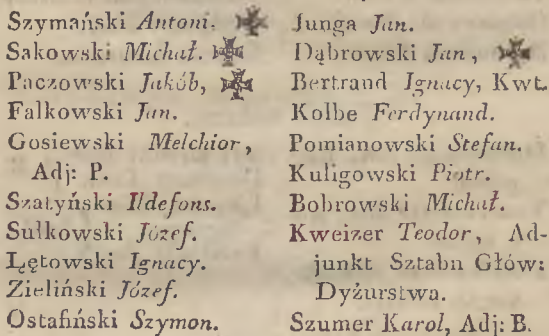 Szymański Antoni.
Sakowski Michał.
Paczowski Jakób,
Falkowski Jan.
Gosiewski Melchior,
Adj: P.
Szatyński Ildefons.
Sułkowski Józef.
Łętowski Ignacy.
Zieliński Józef.
Ostafiński Szymon.
Junga Jan.
Dąbrowski Jan,
Bertrand Ignacy, Kwt.
Kolbe Ferdynand.
Pomianowski Stefan.
Kuligowski Piotr.
Bobrowski Michał.
Kweizer Teodor, Ad-
junkt Sztabu Głów:
Dyżurstwa.
Szumer Karol, Adj: B.